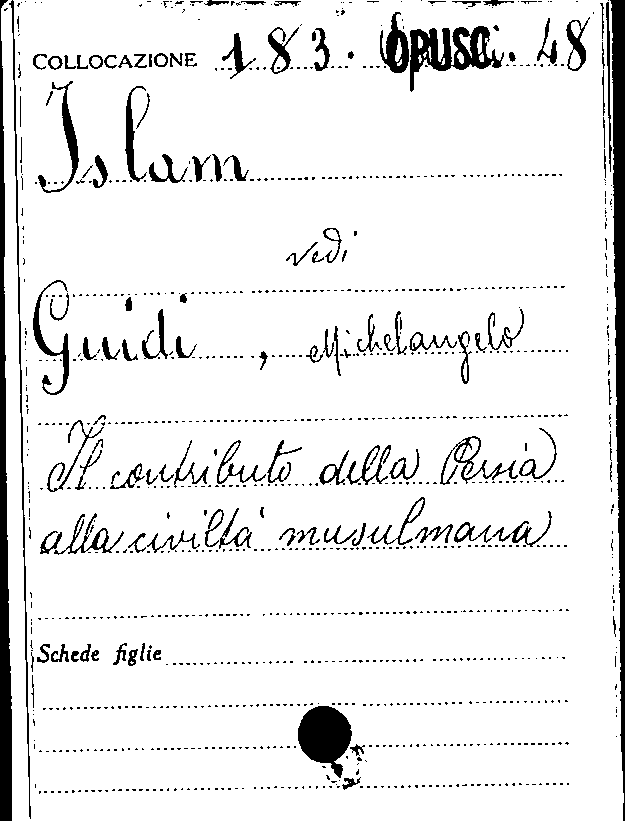 COLLOCAZIONE 183. OPUSC. 48
Islam
vedi
Guidi, Michelangelo
Il contributo della Persia
alla civiltà musulmana
Schede figlie